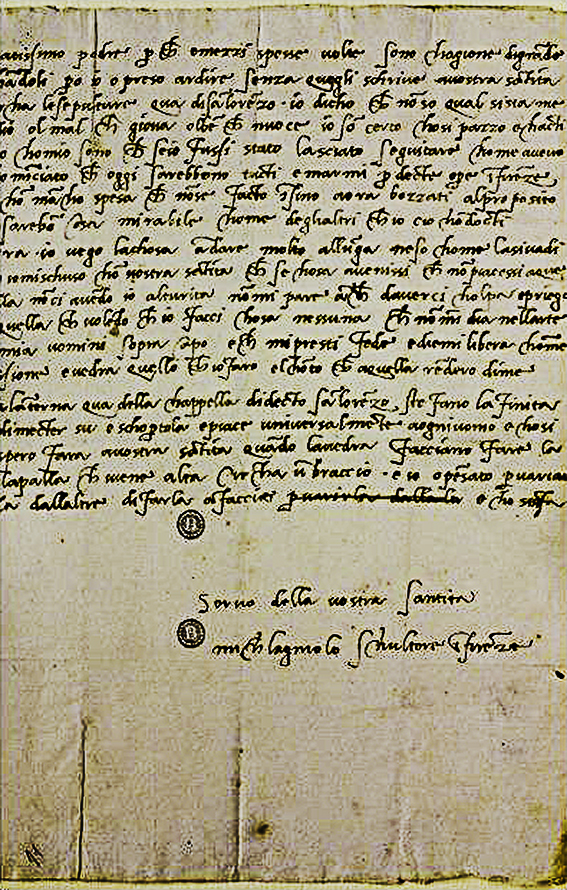 atissimo padre p ch emezzi spesse volte sono chagione digrāde
hādoli po o o preso ardire senza quegli schrive avostra sātita
cha lesepulture qua di sālorēzo · io dicho ch nō so qual sisia me
lio ol mal ch giova olbē ch nuoce io sō certo chosi pazzo e chacti
o chomio sono ch seio fussi stato lasciato seguitare chome avevo
ominciato ch oggi sarebbono tucti emarmi p decte ope ī firēze
chō mācho spesa ch nōse facto īsino aora bozzati alproposito
sarebō cosa mirabile chome deglialtri ch io cio chōdocti
ora io vego lachosa ādare molto allūga neso chome lasivadi
o semischuso chō vostra sātita ch se chosa avenissi ch nōpiacessi aque
lla nōci avēdo io alturita nōmi pare āch daverci cholpa epriego
quella ch volēdo ch io facci chosa nessuna ch nōmi dia nellarte
mia uomini sopra chapo e ch mi presti fede ediemi libera chome
ssione evedra quello ch io faro elchōto ch aquella rēdero dime
lalāterna qua della chappella didecto sālorēzo stefano la finita
dimecter su e schoptola epiace universalmēte aogniuomo echosi
spero fara avostra sātita quādo lavedra facciāno fare la
lapalla ch viene alta circha ū braccio · e io o pēsato p variar
la dallaltre di farla afaccie p variarla dallaltre e
Servo della vostra Santita
michelagniolo schultore ī firēze